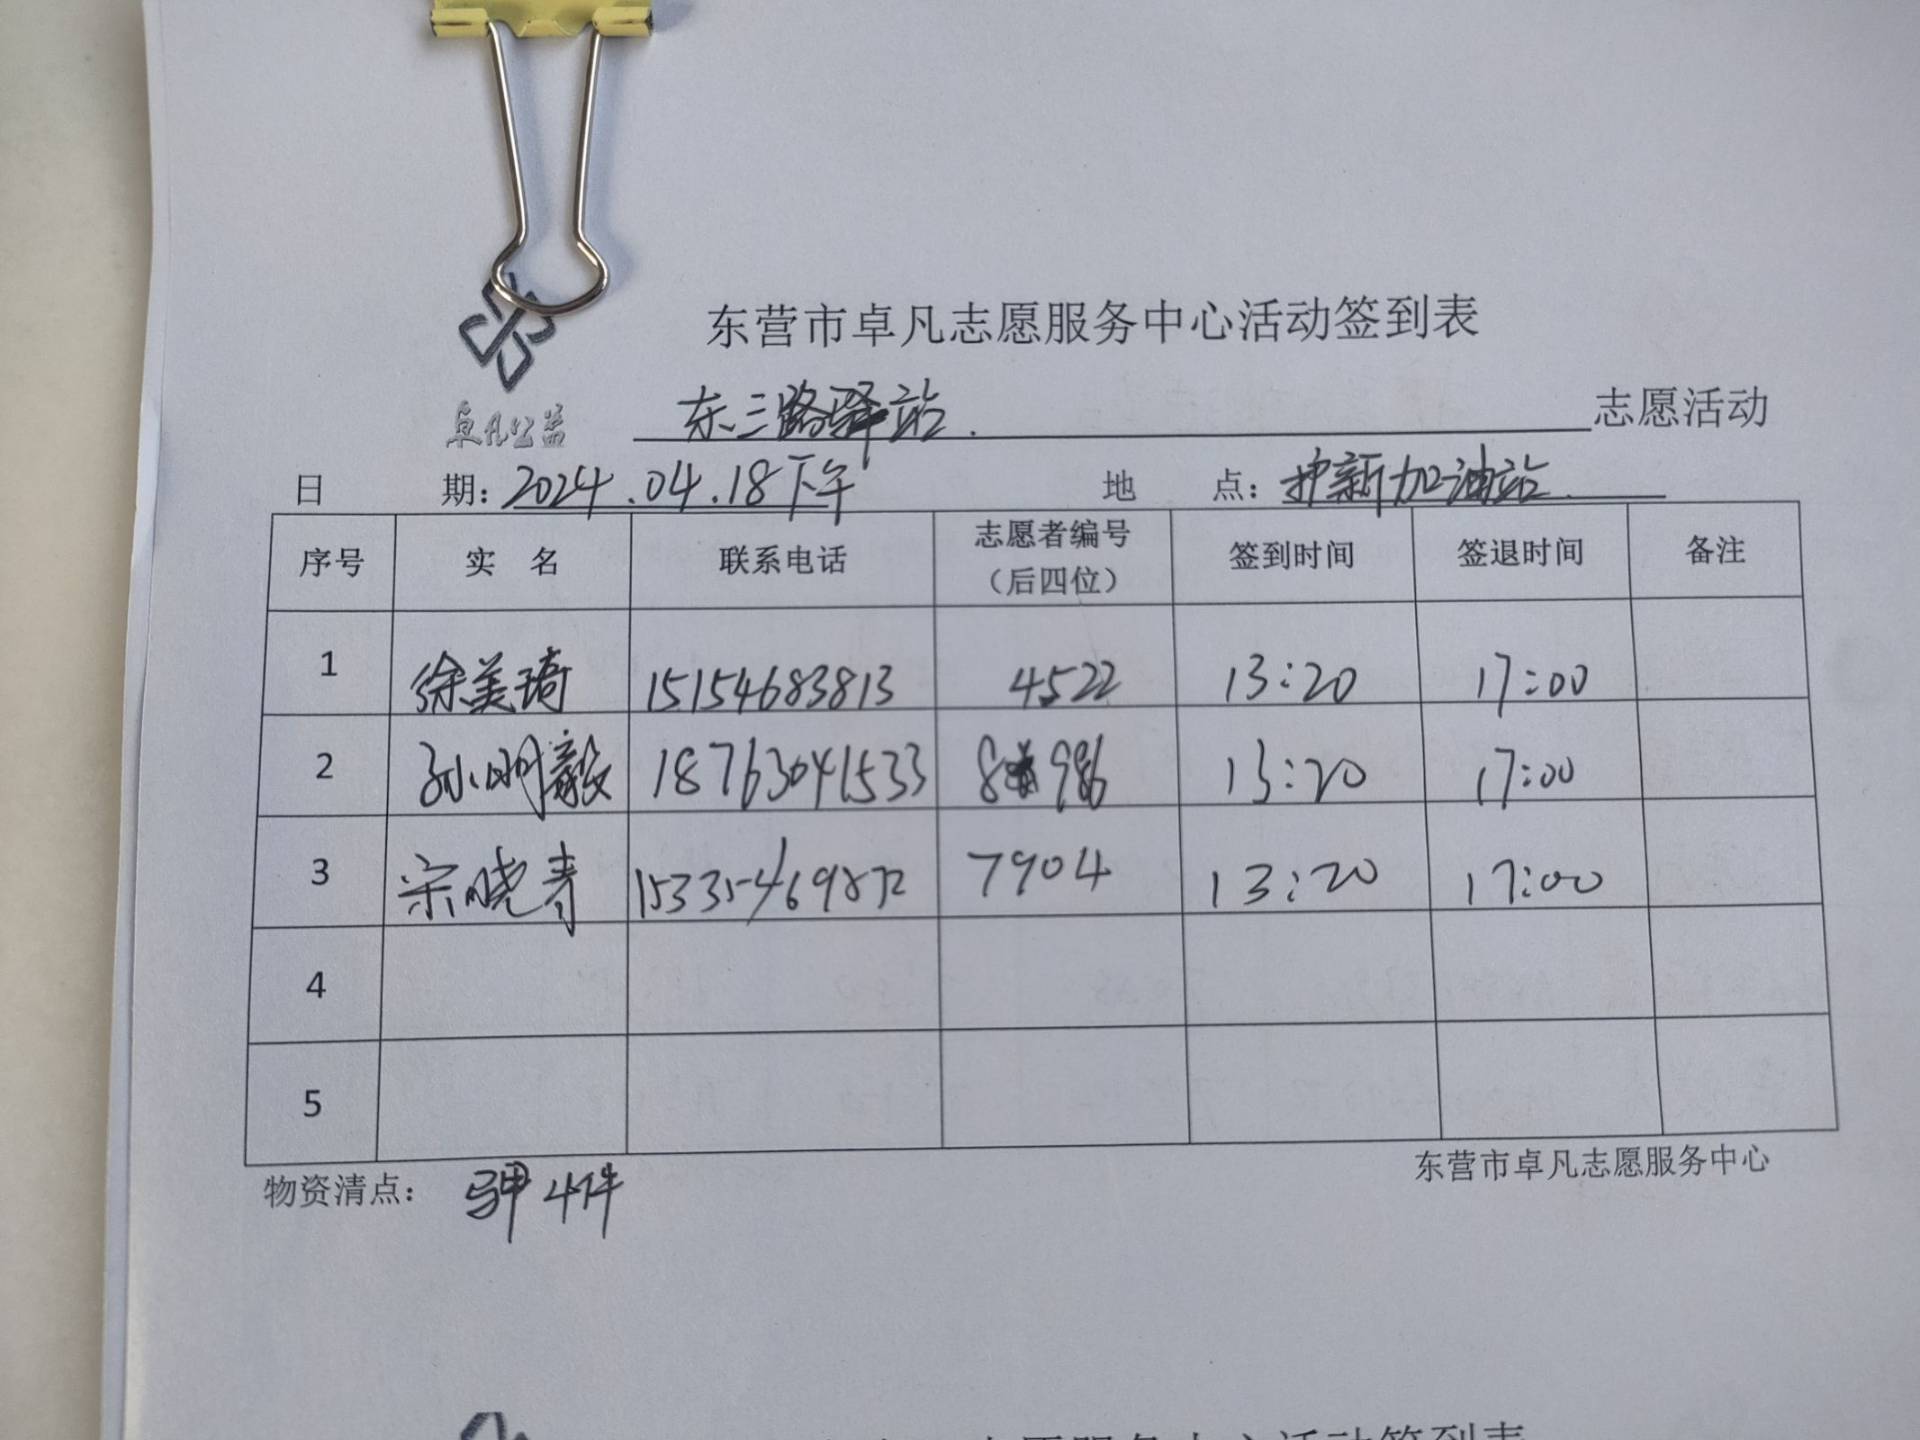 东营市卓凡志愿服务中心活动签到表
卓凡公益
东三路驿站. 志愿活动
日 期: 2024.04.18下午 地 点: 护新加油站.
序号 实 名 联系电话 志愿者编号（后四位） 签到时间 签退时间 备注
1 徐美琦 15154683813 4522 13:20 17:00
2 孙明毅 18763041533 8986 13:20 17:00
3 宋晓青 15335469872 7904 13:20 17:00
4
5
东营市卓凡志愿服务中心
物资清点: 马甲4件